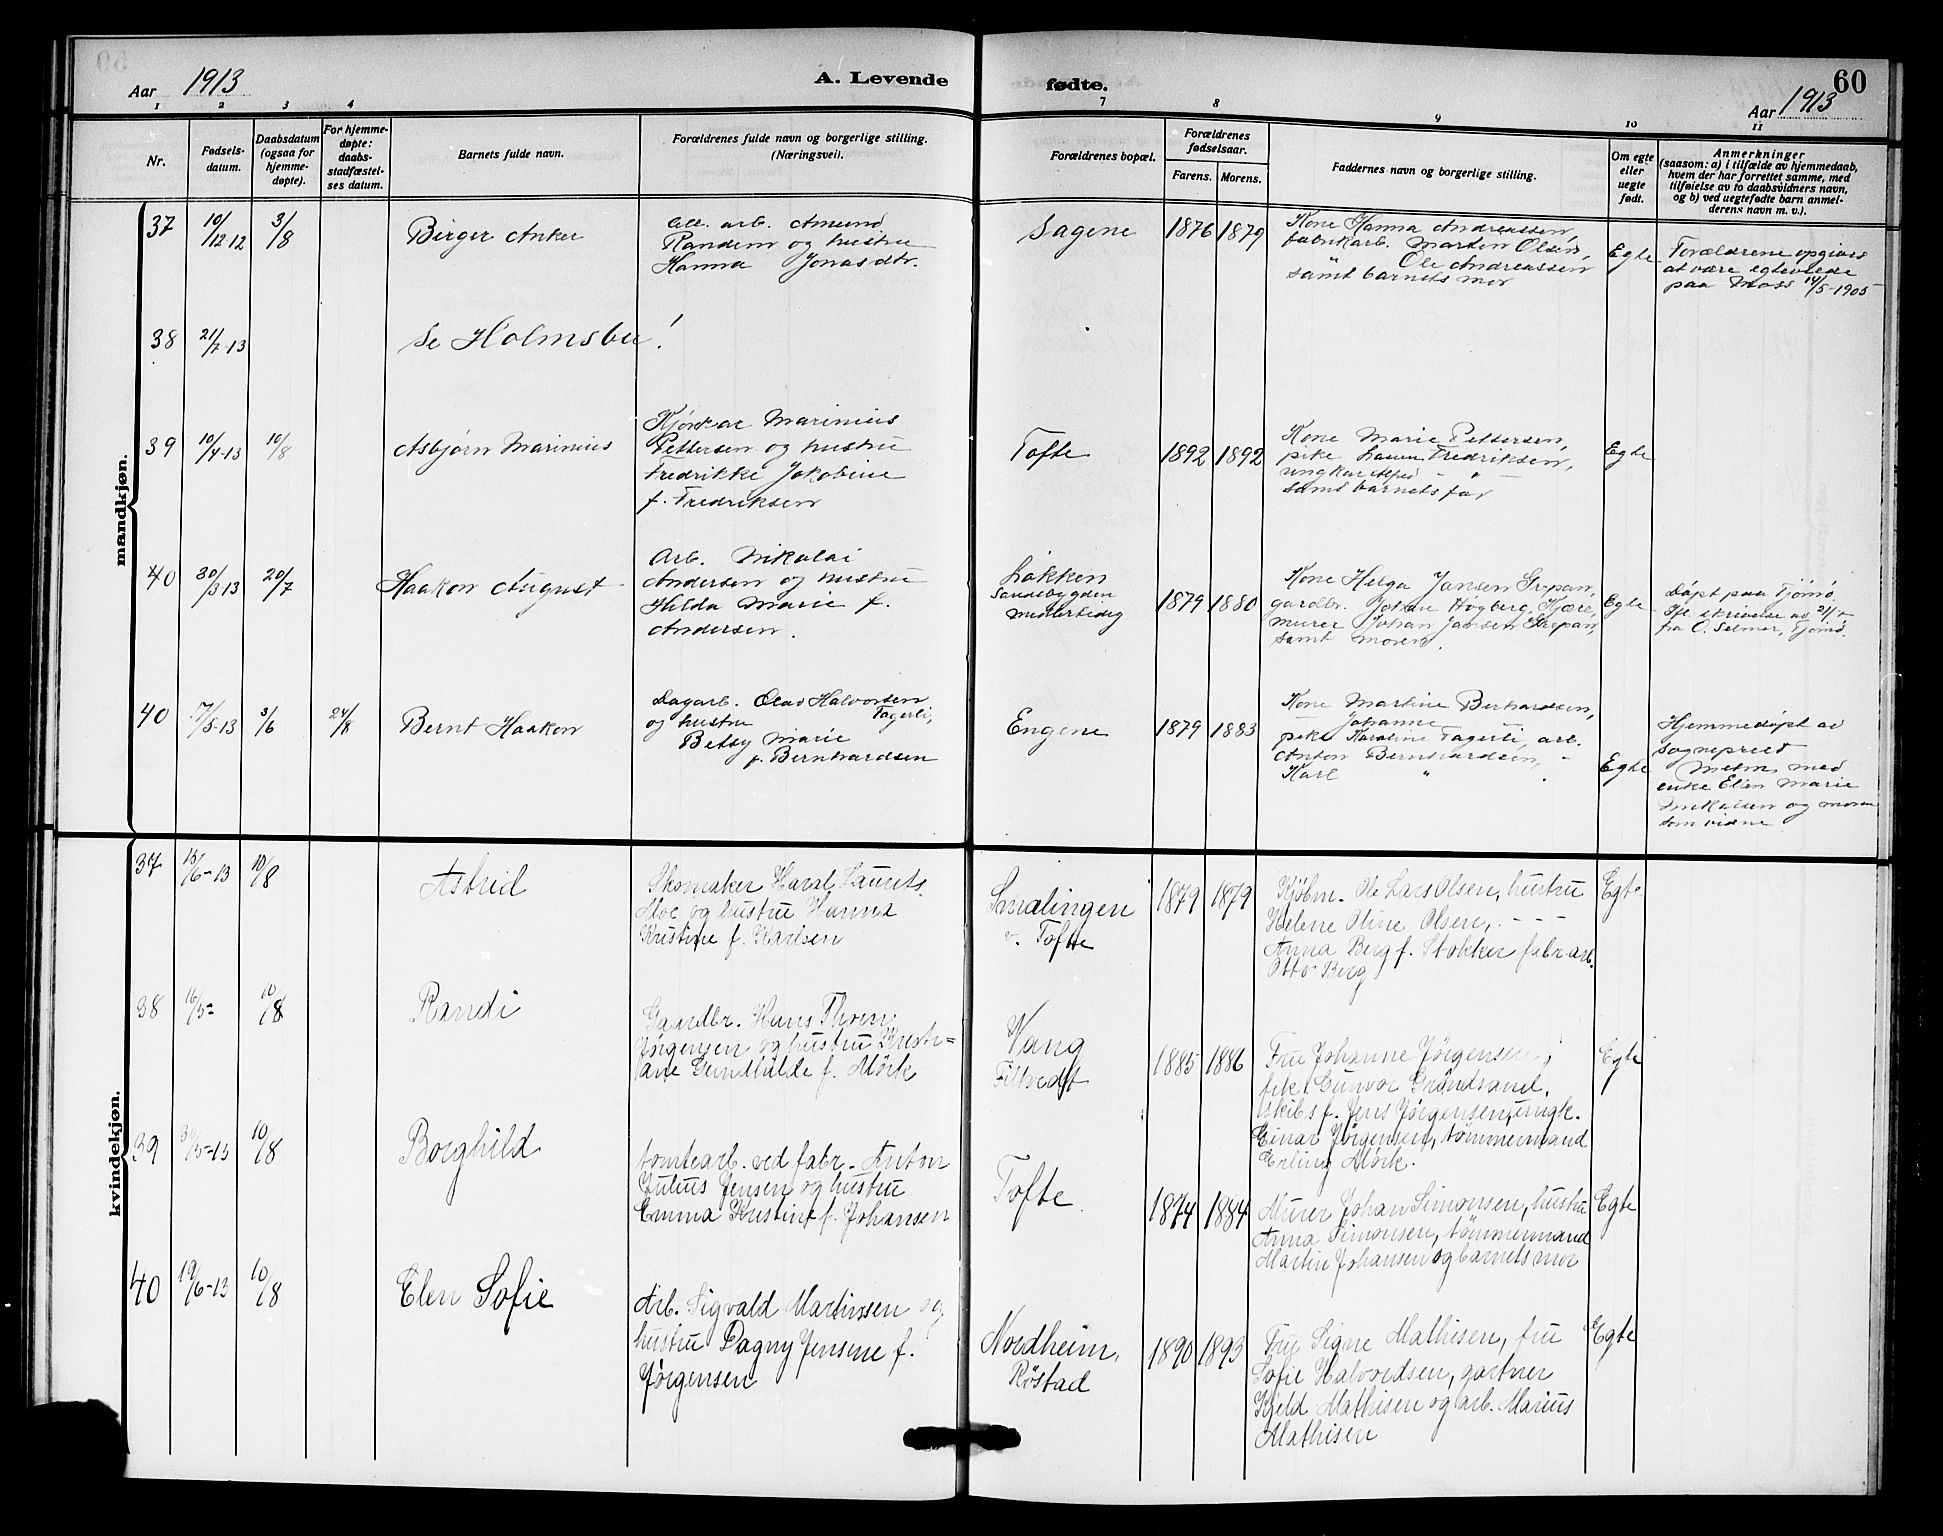 Aar 1913
A. Levende
fødte.
60
Aar 1913
1 2 3 4 7 8 9 10 11
Nr.
Fødsels-
datum.
Daabsdatum
(ogsaa for
hjemme-
døpte).
For hjemme-
døpte:
daabs-
stadfæstel-
ses datum.
Barnets fulde navn.
Forældrenes fulde navn og borgerlige stilling.
(Næringsvei).
Forældrenes bopæl.
Forældrenes
fødselsaar.
Farens. Morens.
Faddernes navn og borgerlige stilling.
Om egte
eller
uegte
født.
Anmerkninger
(saasom: a) i tilfælde av hjemmedaab,
hvem der har forrettet samme, med
tilføielse av to daabsvidners navn,
og b) ved uegtefødte barn anmel-
derens navn m. v.).
mandkjøn.
37
10/12 12
3/8
Birger Anker
arb. Amund
Randem og hustru
Hanna Jonasdtr.
Sagene
1876 1879
Kone Hanna Andreassen,
fabrikarb. Marten Olsen,
" Ole Andreassen
samt barnets mor
Egte
Forældrene opgives
at være egteviede
paa Moss 14/5-1905
38
21/7-13
Se Holmsbu!
39
10/4-13
10/8
Asbjørn Marinius
Marinius
Pettersen og hustru
Fredrikke Jakobine
f. Fredriksen
Tofte
1892 1892
Kone Marie Pettersen,
pike Fredriksen,
ungkar "
samt barnets far
Egte
40
30/3 13
20/7
Haakon August
Arb. Nikolai
Andersen og hustru
Hilda Marie f.
Andersen.
Løkken
Sandebygden
midlertidig
1879 1880
Kone Helga Jansen Grepan,
gardbr. Johan Høgberg, Kjære,
murer Johan Jansen Grepan,
samt moren.
Egte
Døpt paa Tjømø,
ifl. skrivelse av 21/7
fra O. Selmer, Tjømø.
40
7/5-13
3/6
24/8
Bernt Haakon
Dagarb. Olav Halvorsen
og hustru Fagerli,
Betsy Marie
f. Bernhardsen
Engene
1879 1883
Kone Martine Bernhardsen,
Johanne
pike Karoline Fagerli, arb.
Anton Bernhardsen, -
Karl "
Egte
Hjemmedøpt av
sogneprest
med
enke Elen Marie
og moren
som vidne
kvindekjøn.
37
15/6-13
10/8
Astrid
Skomaker Haral Laurits
Moe og hustru Hanna
Kristine f. Karlsen
Smalingen
v. Tofte
1879 1879
Kjøbm. Ole Lars Olsen, hustru
Helene Oline Olsen, - - -
Anna Berg f. Stokker fabr.arb.
Otto Berg
Egte
38
16/5=
10/8
Randi
Gaardbr. Hans Thorn
Jørgensen og hustru Kristi=
ane Gunhilde f. Mørk
Vang
Filtvedt
1885 1886
Fru Johanne Jørgensen,
frk. Gunvor Grøndsand,
skibsf. Jens Jørgensen, ungk.
Einar Jørgensen, tømmermand
Erling Mørk.
Egte
39
30/5-13
10/8
Borghild
tomtearb. ved fabr. Anton
Julius Jensen og hustru
Emma Kristine f. Johansen
Tofte
1874 1884
Murer Johan Simonsen, hustru
Anna Simonsen, tømmermand
Martin Johansen og barnets mor
Egte
40
19/6-13
10/8
Elen Sofie
Arb. Sigvald Martinsen og
hustru Dagny Jensine f.
Jørgensen
Nordheim,
Røstad
1890 1893
Fru Signe Mathisen, fru
Sofie Halvordsen, gartner
Kjeld Mathisen og arb. Marius
Mathisen
Egte